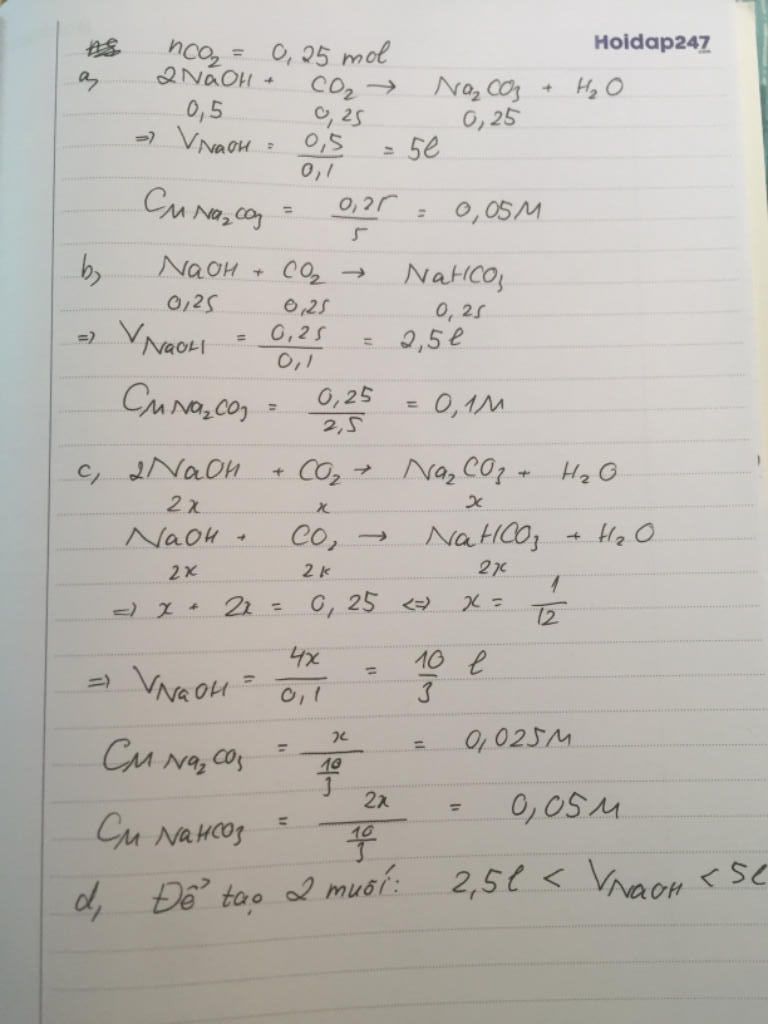 Hoidap247
nCO₂ = 0,25 mol
a, 2NaOH + CO₂ → Na₂CO₃ + H₂O
0,5 0,25 0,25
=> VNaOH = 0,5/0,1 = 5l
CM Na₂CO₃ = 0,25/5 = 0,05M
b, NaOH + CO₂ → NaHCO₃
0,25 0,25 0,25
=> VNaOH = 0,25/0,1 = 2,5l
CM Na₂CO₃ = 0,25/2,5 = 0,1M
c, 2NaOH + CO₂ → Na₂CO₃ + H₂O
2x x x
NaOH + CO₂ → NaHCO₃ + H₂O
2x 2x 2x
=> x + 2x = 0,25 <=> x = 1/12
=> VNaOH = 4x/0,1 = 10/3 l
CM Na₂CO₃ = x/(10/3) = 0,025M
CM NaHCO₃ = 2x/(10/3) = 0,05M
d, Để tạo 2 muối: 2,5l < VNaOH < 5l